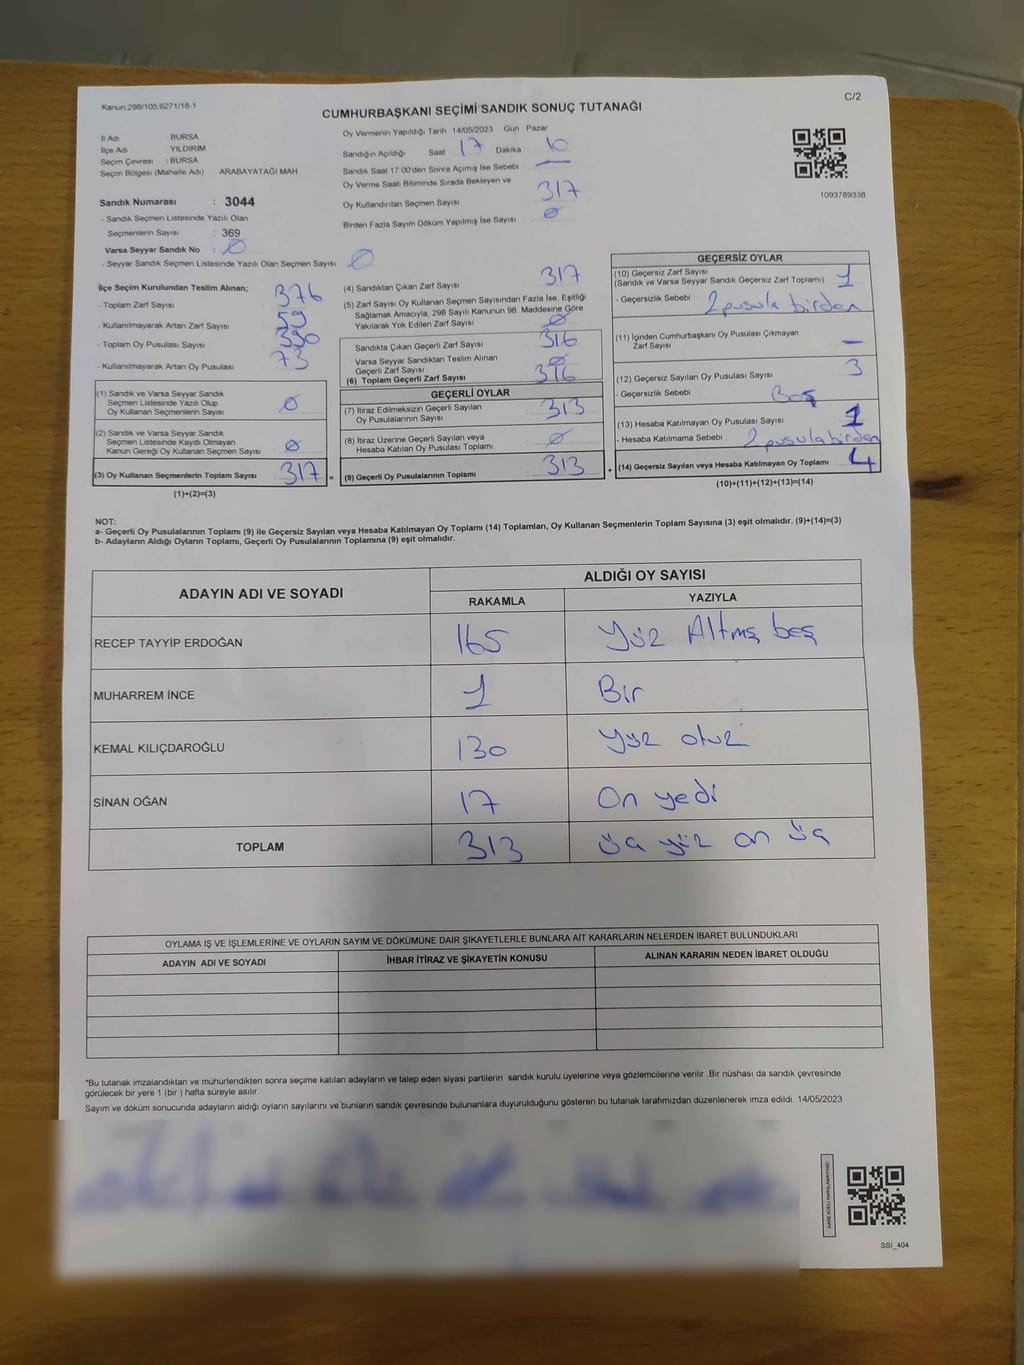 Kanun.298/105.6271/18-1
C/2
CUMHURBAŞKANI SEÇİMİ SANDIK SONUÇ TUTANAĞI
İl Adı BURSA
İlçe Adı YILDIRIM
Seçim Çevresi : BURSA
Seçim Bölgesi (Mahalle Adı) ARABAYATAĞI MAH
Sandık Numarası : 3044
- Sandık Seçmen Listesinde Yazılı Olan
Seçmenlerin Sayısı : 369
Varsa Seyyar Sandık No : 0
- Seyyar Sandık Seçmen Listesinde Yazılı Olan Seçmen Sayısı 0
Oy Vermenin Yapıldığı Tarih 14/05/2023 Gün Pazar
Sandığın Açıldığı Saat 17 Dakika 10
Sandık Saat 17:00'den Sonra Açımış İse Sebebi —
Oy Verme Saati Bitiminde Sırada Bekleyen ve
Oy Kullandırılan Seçmen Sayısı 317
Birden Fazla Sayım Döküm Yapılmış İse Sayısı 0
1093789338
İlçe Seçim Kurulundan Teslim Alınan;
- Toplam Zarf Sayısı 376
- Kullanılmayarak Artan Zarf Sayısı 59
- Toplam Oy Pusulası Sayısı 390
- Kullanılmayarak Artan Oy Pusulası 73
(1) Sandık ve Varsa Seyyar Sandık
Seçmen Listesinde Yazılı Olup
Oy Kullanan Seçmenlerin Sayısı 0
(2) Sandık ve Varsa Seyyar Sandık
Seçmen Listesinde Kayıtlı Olmayan
Kanun Gereği Oy Kullanan Seçmen Sayısı 0
(3) Oy Kullanan Seçmenlerin Toplam Sayısı 317 =
(1)+(2)=(3)
(4) Sandıktan Çıkan Zarf Sayısı 317
(5) Zarf Sayısı Oy Kullanan Seçmen Sayısından Fazla İse, Eşitliği
Sağlamak Amacıyla, 298 Sayılı Kanunun 98. Maddesine Göre
Yakılarak Yok Edilen Zarf Sayısı 0
Sandıkta Çıkan Geçerli Zarf Sayısı 316
Varsa Seyyar Sandıktan Teslim Alınan
Geçerli Zarf Sayısı 0
(6) Toplam Geçerli Zarf Sayısı 316
GEÇERLİ OYLAR
(7) İtiraz Edilmeksizin Geçerli Sayılan
Oy Pusulalarının Sayısı 313
(8) İtiraz Üzerine Geçerli Sayılan veya
Hesaba Katılan Oy Pusulası Toplamı 0
(9) Geçerli Oy Pusulalarının Toplamı 313 +
GEÇERSİZ OYLAR
(10) Geçersiz Zarf Sayısı
(Sandık ve Varsa Seyyar Sandık Geçersiz Zarf Toplamı) 1
- Geçersizlik Sebebi 2 pusula birden
(11) İçinden Cumhurbaşkanı Oy Pusulası Çıkmayan
Zarf Sayısı —
(12) Geçersiz Sayılan Oy Pusulası Sayısı 3
- Geçersizlik Sebebi Boş
(13) Hesaba Katılmayan Oy Pusulası Sayısı 1
- Hesaba Katılmama Sebebi 2 pusula birden
(14) Geçersiz Sayılan veya Hesaba Katılmayan Oy Toplamı 4
(10)+(11)+(12)+(13)=(14)
NOT:
a- Geçerli Oy Pusulalarının Toplamı (9) ile Geçersiz Sayılan veya Hesaba Katılmayan Oy Toplamı (14) Toplamları, Oy Kullanan Seçmenlerin Toplam Sayısına (3) eşit olmalıdır. (9)+(14)=(3)
b- Adayların Aldığı Oyların Toplamı, Geçerli Oy Pusulalarının Toplamına (9) eşit olmalıdır.
ADAYIN ADI VE SOYADI
ALDIĞI OY SAYISI
RAKAMLA YAZIYLA
RECEP TAYYİP ERDOĞAN 165 Yüz Altmış beş
MUHARREM İNCE 1 Bir
KEMAL KILIÇDAROĞLU 130 Yüz otuz
SİNAN OĞAN 17 On yedi
TOPLAM 313 üç yüz on üç
OYLAMA İŞ VE İŞLEMLERİNE VE OYLARIN SAYIM VE DÖKÜMÜNE DAİR ŞİKAYETLERLE BUNLARA AİT KARARLARIN NELERDEN İBARET BULUNDUKLARI
ADAYIN ADI VE SOYADI İHBAR İTİRAZ VE ŞİKAYETİN KONUSU ALINAN KARARIN NEDEN İBARET OLDUĞU
*Bu tutanak imzalandıktan ve mühürlendikten sonra seçime katılan adayların ve talep eden siyasi partilerin sandık kurulu üyelerine veya gözlemcilerine verilir .Bir nüshası da sandık çevresinde
görülecek bir yere 1 (bir ) hafta süreyle asılır.
Sayım ve döküm sonucunda adayların aldığı oyların sayılarını ve bunların sandık çevresinde bulunanlara duyurulduğunu gösteren bu tutanak tarafımızdan düzenlenerek imza edildi. 14/05/2023
SSI_404